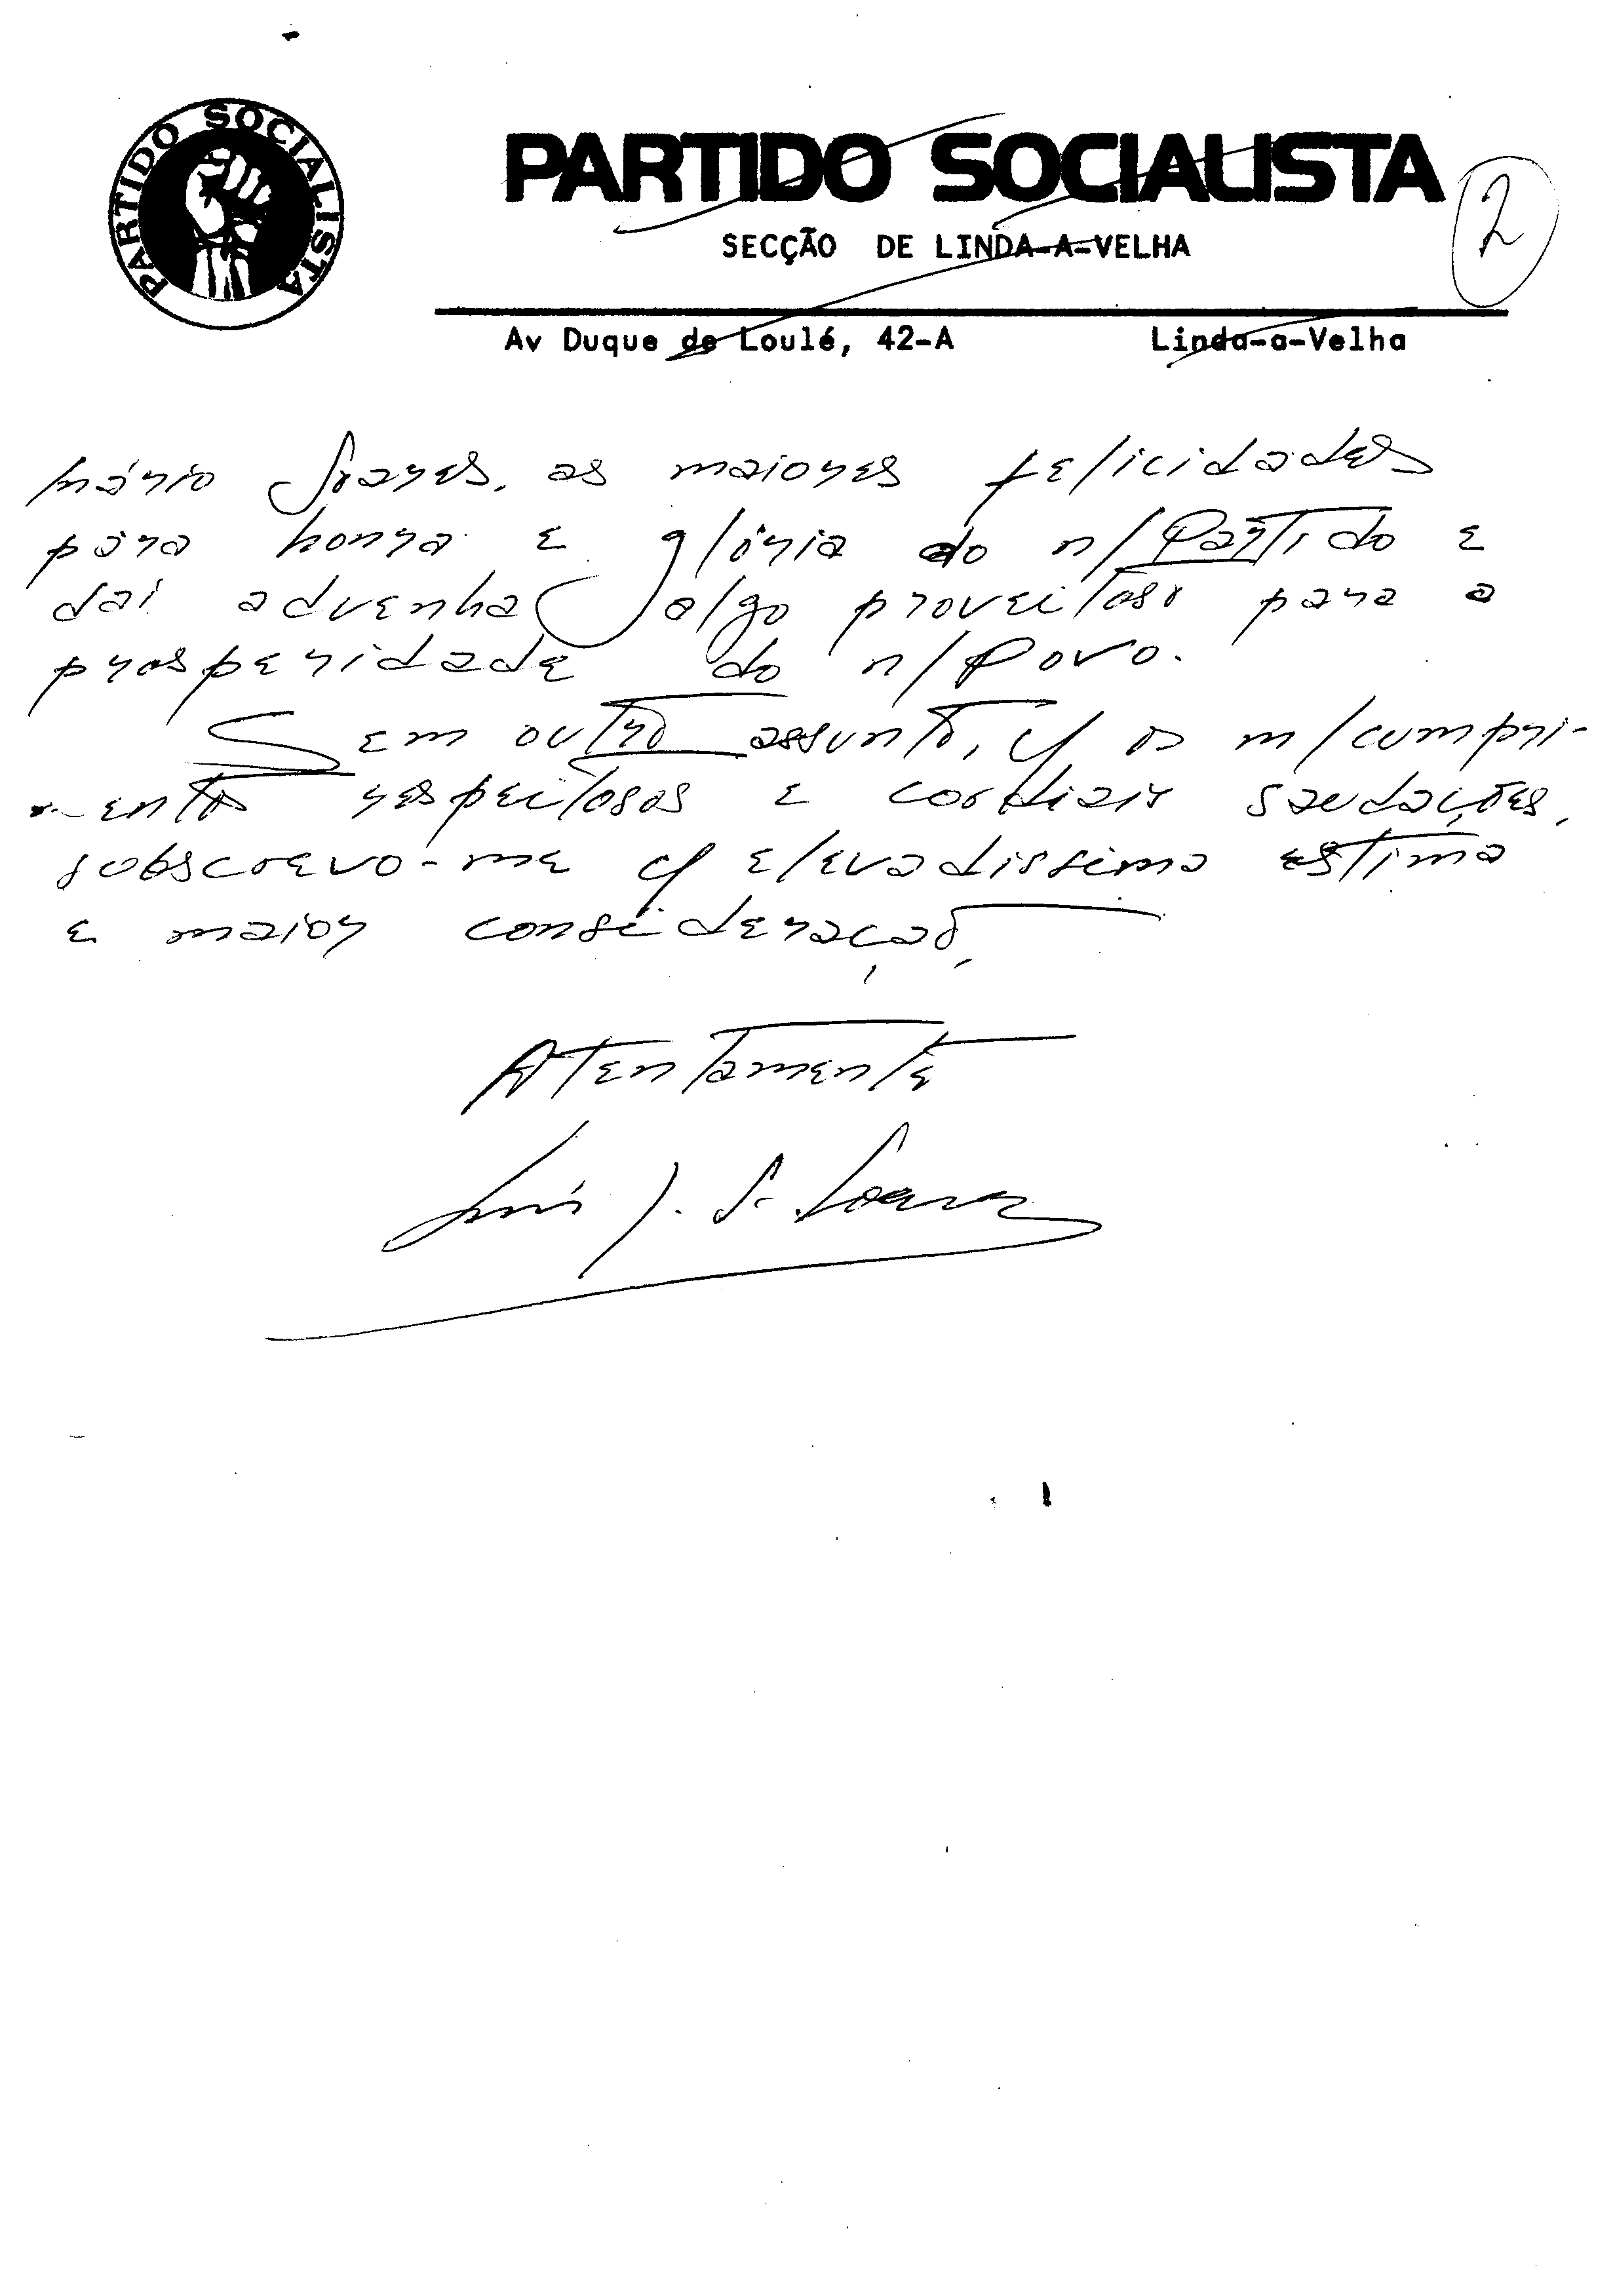 PARTIDO SOCIALISTA
PARTIDO SOCIALISTA
2
SECÇÃO DE LINDA-A-VELHA
Av Duque de Loulé, 42-A Linda-a-Velha
Mário Soares, as maiores felicidades
para honra e glória do n/Partido e
daí advenha algo proveitoso para a
prosperidade do n/Povo.
Sem outro assunto, c/ os m/cumpri-
mentos respeitosos e cordiais saudações,
sobscrevo-me c/ elevadissima estima
e maior consideração,
Atentamente
Luís J. S. Soares